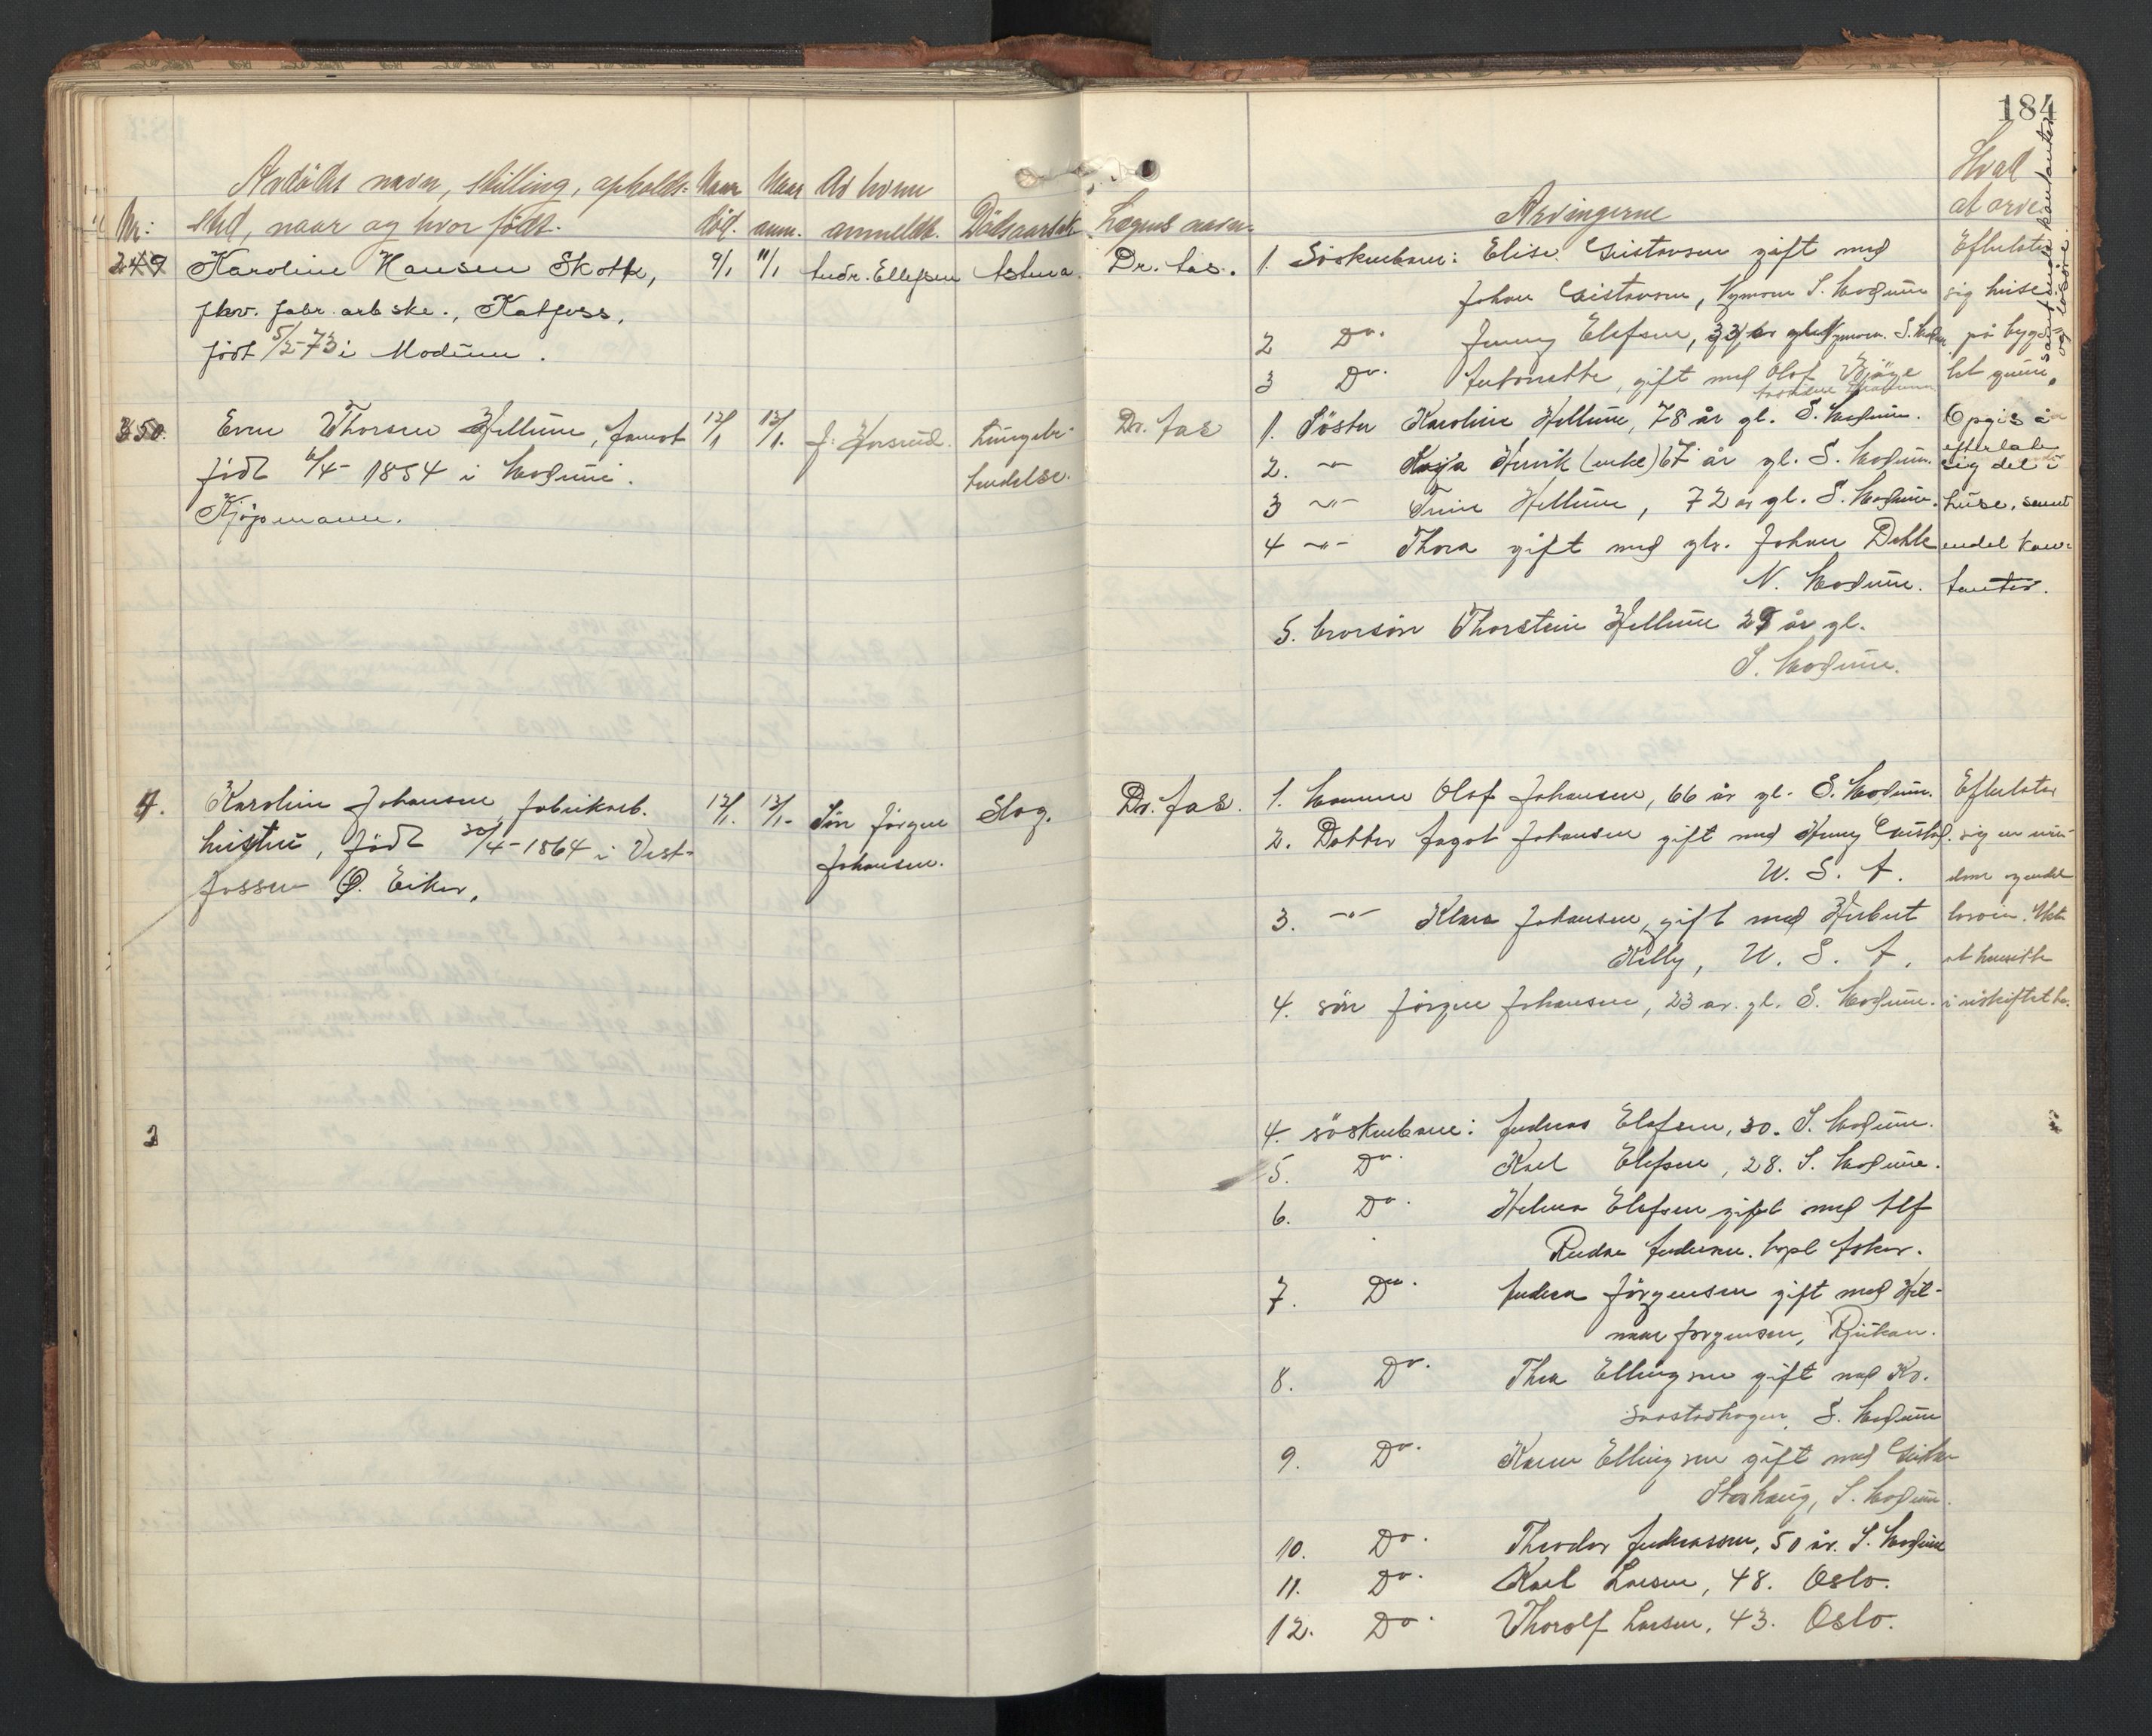 184
Avdødes navn, stilling, opholds- Naar Naar Av hvem Hvad
Nr: sted, naar og hvor født. død. anm. anmeldt. Dødsaarsak Lægens navn. Arvingerne at arve
249 Karoline Hansen Skotte, 9/1 11/1 Andr. Ellefsen Astma. Dr. Aas.
fhv. fabr. arbske.,
født 5/2-73 i Modum.
1. Søskenbarn: Elise Gustavsen gift med
Johan Gustavsen, Nymoen S. Modum
2 Do. Jenny Elefsen, 33 år gl. Nymoen. S. Modum
3 Do. Antonette, gift med Olof
Efterlater
sig huse
på byg-
let grunn,
samt kontanter
og løsøre.
350. Even Thorsen Hellum, 12/1 13/1. J. Horsrud. Lungebe-
tendelse. Dr. Aas
født 6/4-1854 i Modum.
Kjøpmann.
1. Søster Karoline Hellum, 78 år gl. S. Modum.
2. -"- Kaja Hervik (enke) 67 år gl. S. Modum.
3 -"- Trine Hellum, 72 år gl. S. Modum.
4 -"- Thora gift med gbr. Johan Dehle
N. Modum.
5. Brorsøn Thorstein Hellum 29 år gl.
S. Modum.
Opgis å
efterlate
sig del i
huse, samt
endel kon-
tanter.
1. Karoline Johansen, fabrikarb. 12/1. 13/1- Søn Jørgen Slag. Dr. Aas.
hustru, født 30/4-1864 i Vest- Johansen.
fossen Ø. Eiker.
1. Mannen Olof Johansen, 66 år gl. S. Modum.
2. Datter Johansen gift med Gustaf.
U. S. A.
3. -"- Klara Johansen, gift med Herbert
Kelly, U. S. A.
4. søn Jørgen Johansen, 23 år. gl. S. Modum.
Efterlater
sig en
dom og endel
at hensitte
i uskiftet bo.
2
4. søskenbarn: Andreas Elefsen, 30. S. Modum.
5. Do. Karl Elefsen, 28. S. Modum.
6. Do. Helma Elefsen gift med Alf
Andersen. bopl Asker.
7. Do. Andrea Jørgensen gift med Hil-
mar Jørgensen, Rjukan.
8. Do. Thea Ellingsen gift med Kr.
S. Modum
9. Do. Karen Ellingsen gift med
S. Modum.
10. Do. Theodor Andreassen, 50 år. S. Modum
11. Do. Karl Larsen, 48. Oslo.
12. Do. Thorolf Larsen, 43. Oslo.